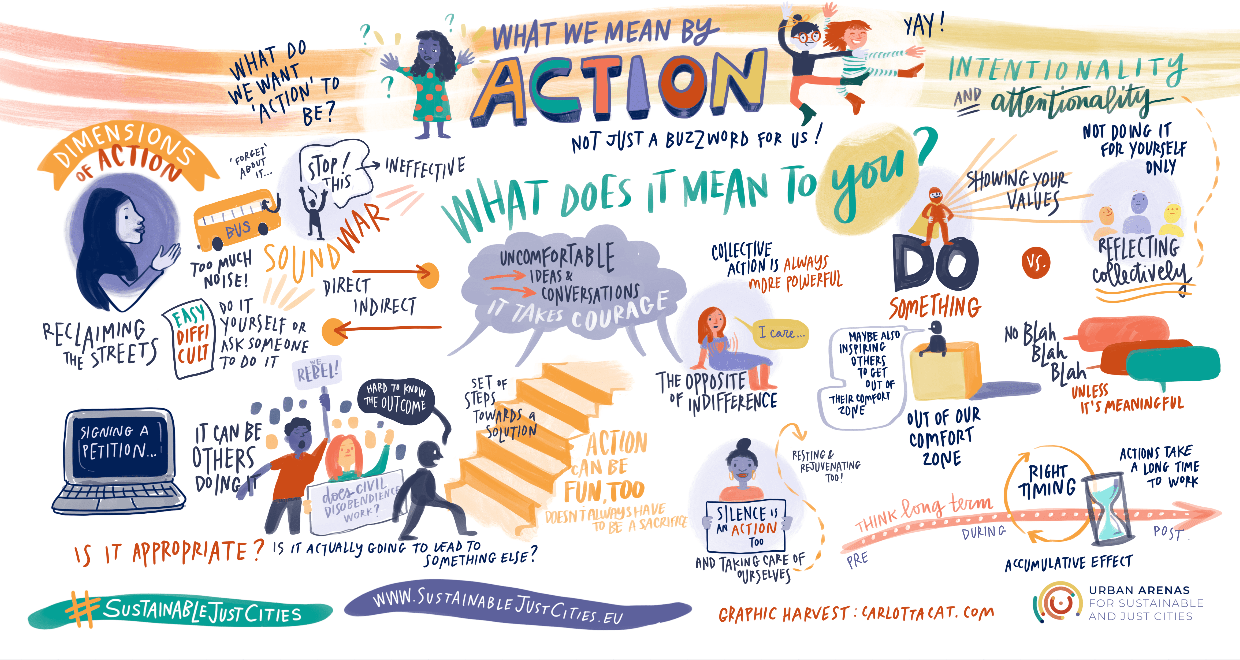 WHAT DO
WE WANT
'ACTION' TO
BE?
?
?
?
WHAT WE MEAN BY
ACTION
NOT JUST A BUZZWORD FOR US!
YAY!
INTENTIONALITY
AND attentionality
DIMENSIONS
OF ACTION
'FORGET'
ABOUT
IT...
BUS
TOO MUCH
NOISE!
STOP!
THIS
INEFFECTIVE
SOUND WAR
DIRECT
INDIRECT
RECLAIMING
THE STREETS
EASY
DIFFI
CULT
DO IT
YOURSELF OR
ASK SOMEONE
TO DO IT
WHAT DOES IT MEAN TO you?
UNCOMFORTABLE
IDEAS &
CONVERSATIONS
IT TAKES COURAGE
COLLECTIVE
ACTION IS ALWAYS
MORE POWERFUL
I care...
THE OPPOSITE
OF INDIFFERENCE
SHOWING YOUR
VALUES
DO
SOMETHING
VS.
NOT DOING IT
FOR YOURSELF
ONLY
REFLECTING
collectively
MAYBE ALSO
INSPIRING
OTHERS
TO GET
OUT OF
THEIR COMFORT
ZONE
OUT OF OUR
COMFORT
ZONE
NO BLAH
BLAH
BLAH
UNLESS
IT'S MEANINGFUL
SIGNING A
PETITION...
IT CAN BE
OTHERS
DOING IT
WE
REBEL!
HARD TO KNOW
THE OUTCOME
does CIVIL
DISOBENDIENCE
WORK?
SET OF
STEPS
TOWARDS a
SOLUTION
ACTION
CAN BE
FUN, TOO
DOESN'T ALWAYS HAVE
TO BE A SACRIFICE
RESTING &
REJUVENATING
TOO!
SILENCE IS
AN ACTION
TOO
AND TAKING CARE OF
OURSELVES
THINK long term
PRE
DURING
POST.
RIGHT
TIMING
ACTIONS TAKE
A LONG TIME
TO WORK
ACCUMULATIVE EFFECT
IS IT APPROPRIATE?
IS IT ACTUALLY GOING TO LEAD TO
SOMETHING ELSE?
#SUSTAINABLEJUSTCITIES
WWW.SUSTAINABLEJUSTCITIES.EU
GRAPHIC HARVEST: CARLOTTACAT.COM
URBAN ARENAS
FOR SUSTAINABLE
AND JUST CITIES